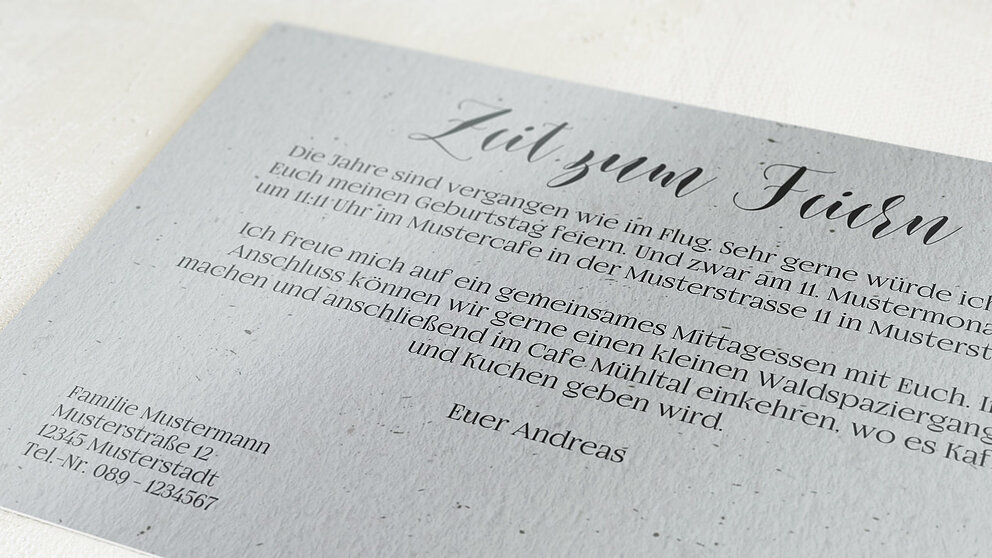 Zeit zum Feiern
Die Jahre sind vergangen wie im Flug. Sehr gerne würde ich
Euch meinen Geburtstag feiern. Und zwar am 11. Mustermona
um 11:11 Uhr im Mustercafe in der Musterstrasse 11 in Musterst
Ich freue mich auf ein gemeinsames Mittagessen mit Euch. I
Anschluss können wir gerne einen kleinen Waldspaziergang
machen und anschließend im Cafe Mühltal einkehren, wo es Kaf
und Kuchen geben wird.
Euer Andreas
Familie Mustermann
Musterstraße 12
12345 Musterstadt
Tel.-Nr. 089 - 1234567